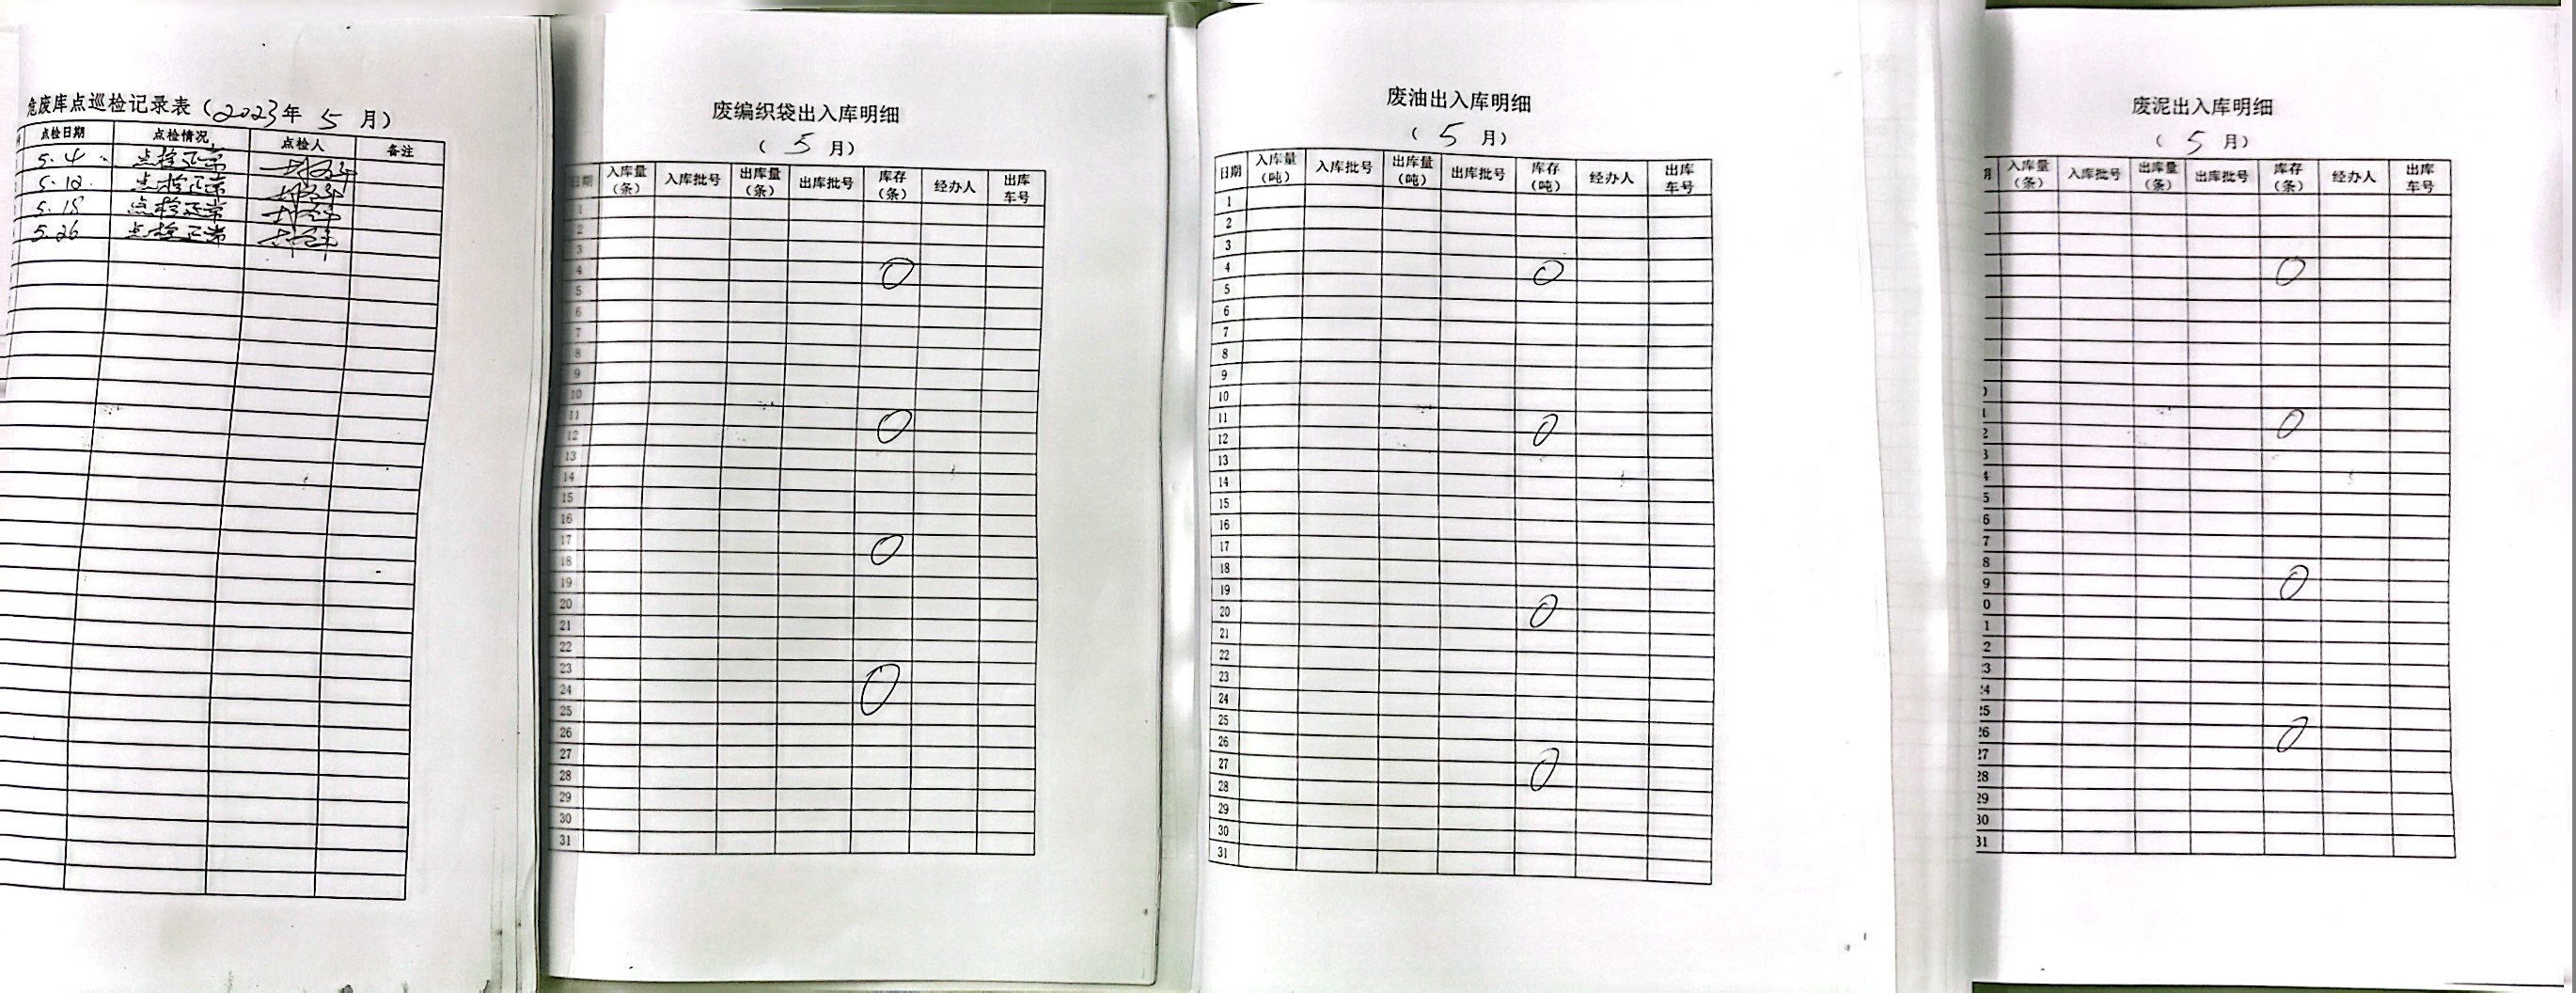 危废库点巡检记录表（2023年 5 月）
点检日期 点检情况 点检人 备注
5.4 点检正常
5.12 点检正常
5.18 点检正常
5.26 点检正常
废编织袋出入库明细
（ 5 月）
日期 入库量（条） 入库批号 出库量（条） 出库批号 库存（条） 经办人 出库车号
1
2
3
4 0
5
6
7
8
9
10
11
12 0
13
14
15
16
17
18 0
19
20
21
22
23
24 0
25
26
27
28
29
30
31
废油出入库明细
（ 5 月）
日期 入库量（吨） 入库批号 出库量（吨） 出库批号 库存（吨） 经办人 出库车号
1
2
3
4 0
5
6
7
8
9
10
11
12 0
13
14
15
16
17
18
19
20 0
21
22
23
24
25
26
27 0
28
29
30
31
废泥出入库明细
（ 5 月）
期 入库量（条） 入库批号 出库量（条） 出库批号 库存（条） 经办人 出库车号
0
1
2 0
3
4
5
6
7
8
9 0
0
1
2
23
24
25
26 0
27
28
29
30
31